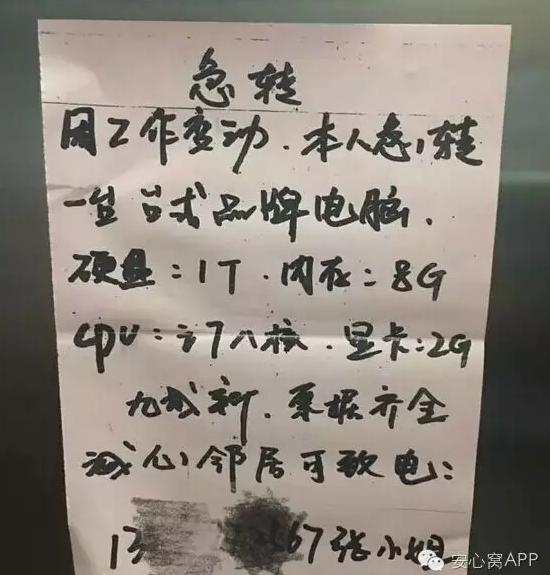 急转
因工作变动.本人急转
一台台式品牌电脑.
硬盘:1T.内存:8G
CPU:i7八核.显卡:2G
九成新.票据齐全
诚心邻居可致电:
13 567张小姐
安心窝APP